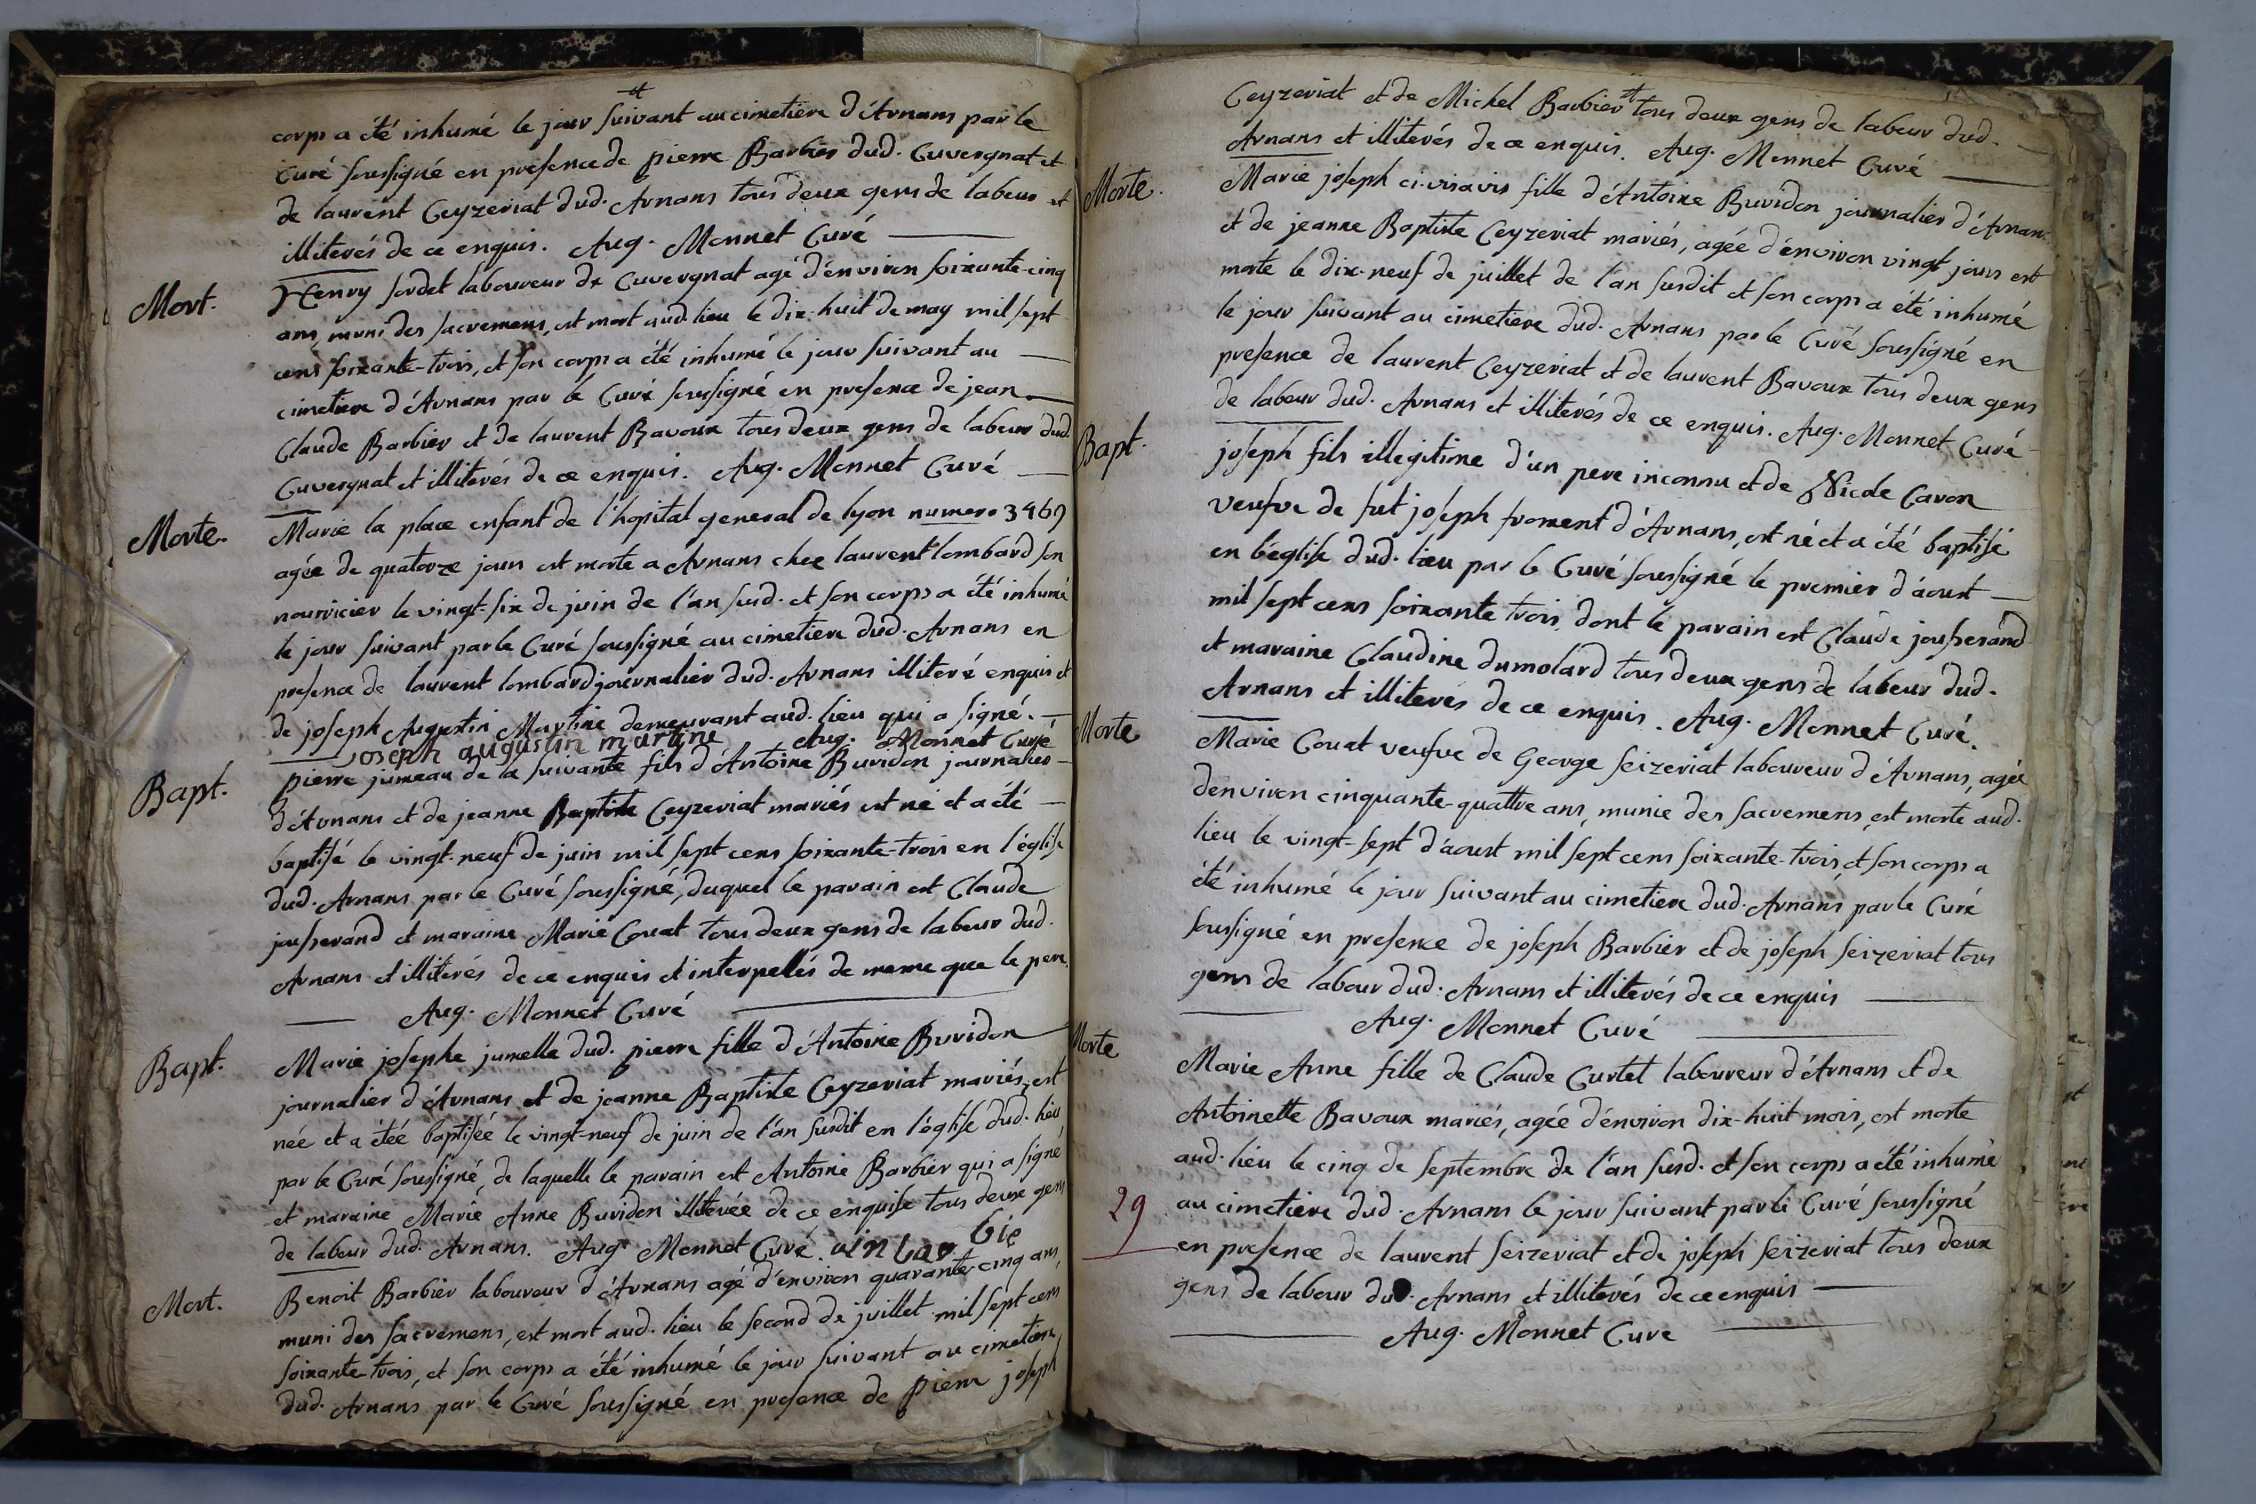 corps a été inhumé le jour suivant au cimetiere d'Arnans par le
Curé soussigné en presence de pierre Barbier dud. Cuvergnat et
de laurent Ceyzeriat dud. Arnans tous deux gens de labeur et
illiterés de ce enquis. Aug. Monnet Curé
Mort.
Henry sordet laboureur de Cuvergnat agé d'énviron soixante-cinq
ans, muni des sacremens, est mort aud. lieu le dix-huit de may mil sept
cens soixante-trois, et son corps a été inhumé le jour suivant au
cimetiere d'Arnans par le Curé soussigné en presence de jean
Claude Barbier et de laurent Bavoux tous deux gens de labeur dud.
Cuvergnat et illiterés de ce enquis. Aug. Monnet Curé
Morte.
Marie la place enfant de l'hopital general de lyon numero 3469
agée de quatorze jours est morte a Arnans chez laurent lombard son
nourricier le vingt-six de juin de l'an susd. et son corps a été inhumé
le jour suivant par le Curé soussigné au cimetiere dud. Arnans en
presence de laurent lombard journalier dud. Arnans illiteré enquis et
de joseph Augustin Martine demeurant aud. lieu qui a signé.
joseph augustin martine Aug. Monnet Curé
Bapt.
pierre jumeau de la suivante fils d'Antoine Buridon journalier
d'Arnans et de jeanne Baptiste Ceyzeriat mariés est né et a été
baptisé le vingt-neuf de juin mil sept cens soixante-trois en l'église
dud. Arnans par le Curé soussigné, duquel le parain est Claude
jousserand et maraine Marie Couat tous deux gens de labeur dud.
Arnans et illiterés de ce enquis et interpellés de meme que le pere.
Aug. Monnet Curé
Bapt.
Marie josephe jumelle dud. pierre fille d'Antoine Buridon
journalier d'Arnans et de jeanne Baptiste Ceyzeriat mariés, est
née et a étéé baptisée le vingt-neuf de juin de l'an susdit en l'église dud. lieu
par le Curé soussigné, de laquelle le parain est Antoine Barbier qui a signé
et maraine Marie Anne Buridon illiterée de ce enquise tous deux gens
de labeur dud. Arnans. Aug. Monnet Curé.
Mort.
Benoit Barbier laboureur d'Arnans agé d'énviron quarante-cinq ans,
muni des sacremens, est mort aud. lieu le second de juillet mil sept cens
soixante-trois, et son corps a été inhumé le jour suivant au cimetiere
dud. Arnans par le Curé soussigné en presence de pierre joseph
Ceyzeriat et de Michel Barbier tous deux gens de labeur dud.
Arnans et illiterés de ce enquis. Aug. Monnet Curé
Morte.
Marie joseph ci-visavis fille d'Antoine Buridon journalier d'Arnans
et de jeanne Baptiste Ceyzeriat mariés, agée d'énviron vingt jours est
morte le dix-neuf de juillet de l'an susdit et son corps a été inhumé
le jour suivant au cimetiere dud. Arnans par le Curé soussigné en
presence de laurent Ceyzeriat et de laurent Bavoux tous deux gens
de labeur dud. Arnans et illiterés de ce enquis. Aug. Monnet Curé
Bapt.
joseph fils illegitime d'un pere inconnu et de Nicole Caron
veufve de fut joseph froment d'Arnans, est né et a été baptisé
en l'église dud. lieu par le Curé soussigné le premier d'áoust
mil sept cens soixante trois, dont le parain est Claude jousserand
et maraine Claudine dumolard tous deux gens de labeur dud.
Arnans et illiterés de ce enquis. Aug. Monnet Curé.
Morte
Marie Couat veufve de George seizeriat laboureur d'Arnans, agée
d'enviren cinquante-quattre ans, munie des sacremens, est morte aud.
lieu le vingt-sept d'áoust mil sept cens soixante-trois, et son corps a
été inhumé le jour suivant au cimetiere dud. Arnans par le Curé
soussigné en presence de joseph Barbier et de joseph seizeriat tous
gens de labeur dud. Arnans et illiterés de ce enquis
Aug. Monnet Curé
Morte
Marie Anne fille de Claude Curtet laboureur d'Arnans et de
Antoinette Bavoux mariés, agée d'énviron dix-huit mois, est morte
aud. lieu le cinq de septembre de l'an susd. et son corps a été inhumé
29
au cimetiere dud. Arnans le jour suivant par le Curé soussigné
en presence de laurent seizeriat et de joseph seizeriat tous deux
gens de labeur dud. Arnans et illiterés de ce enquis
Aug. Monnet Cure